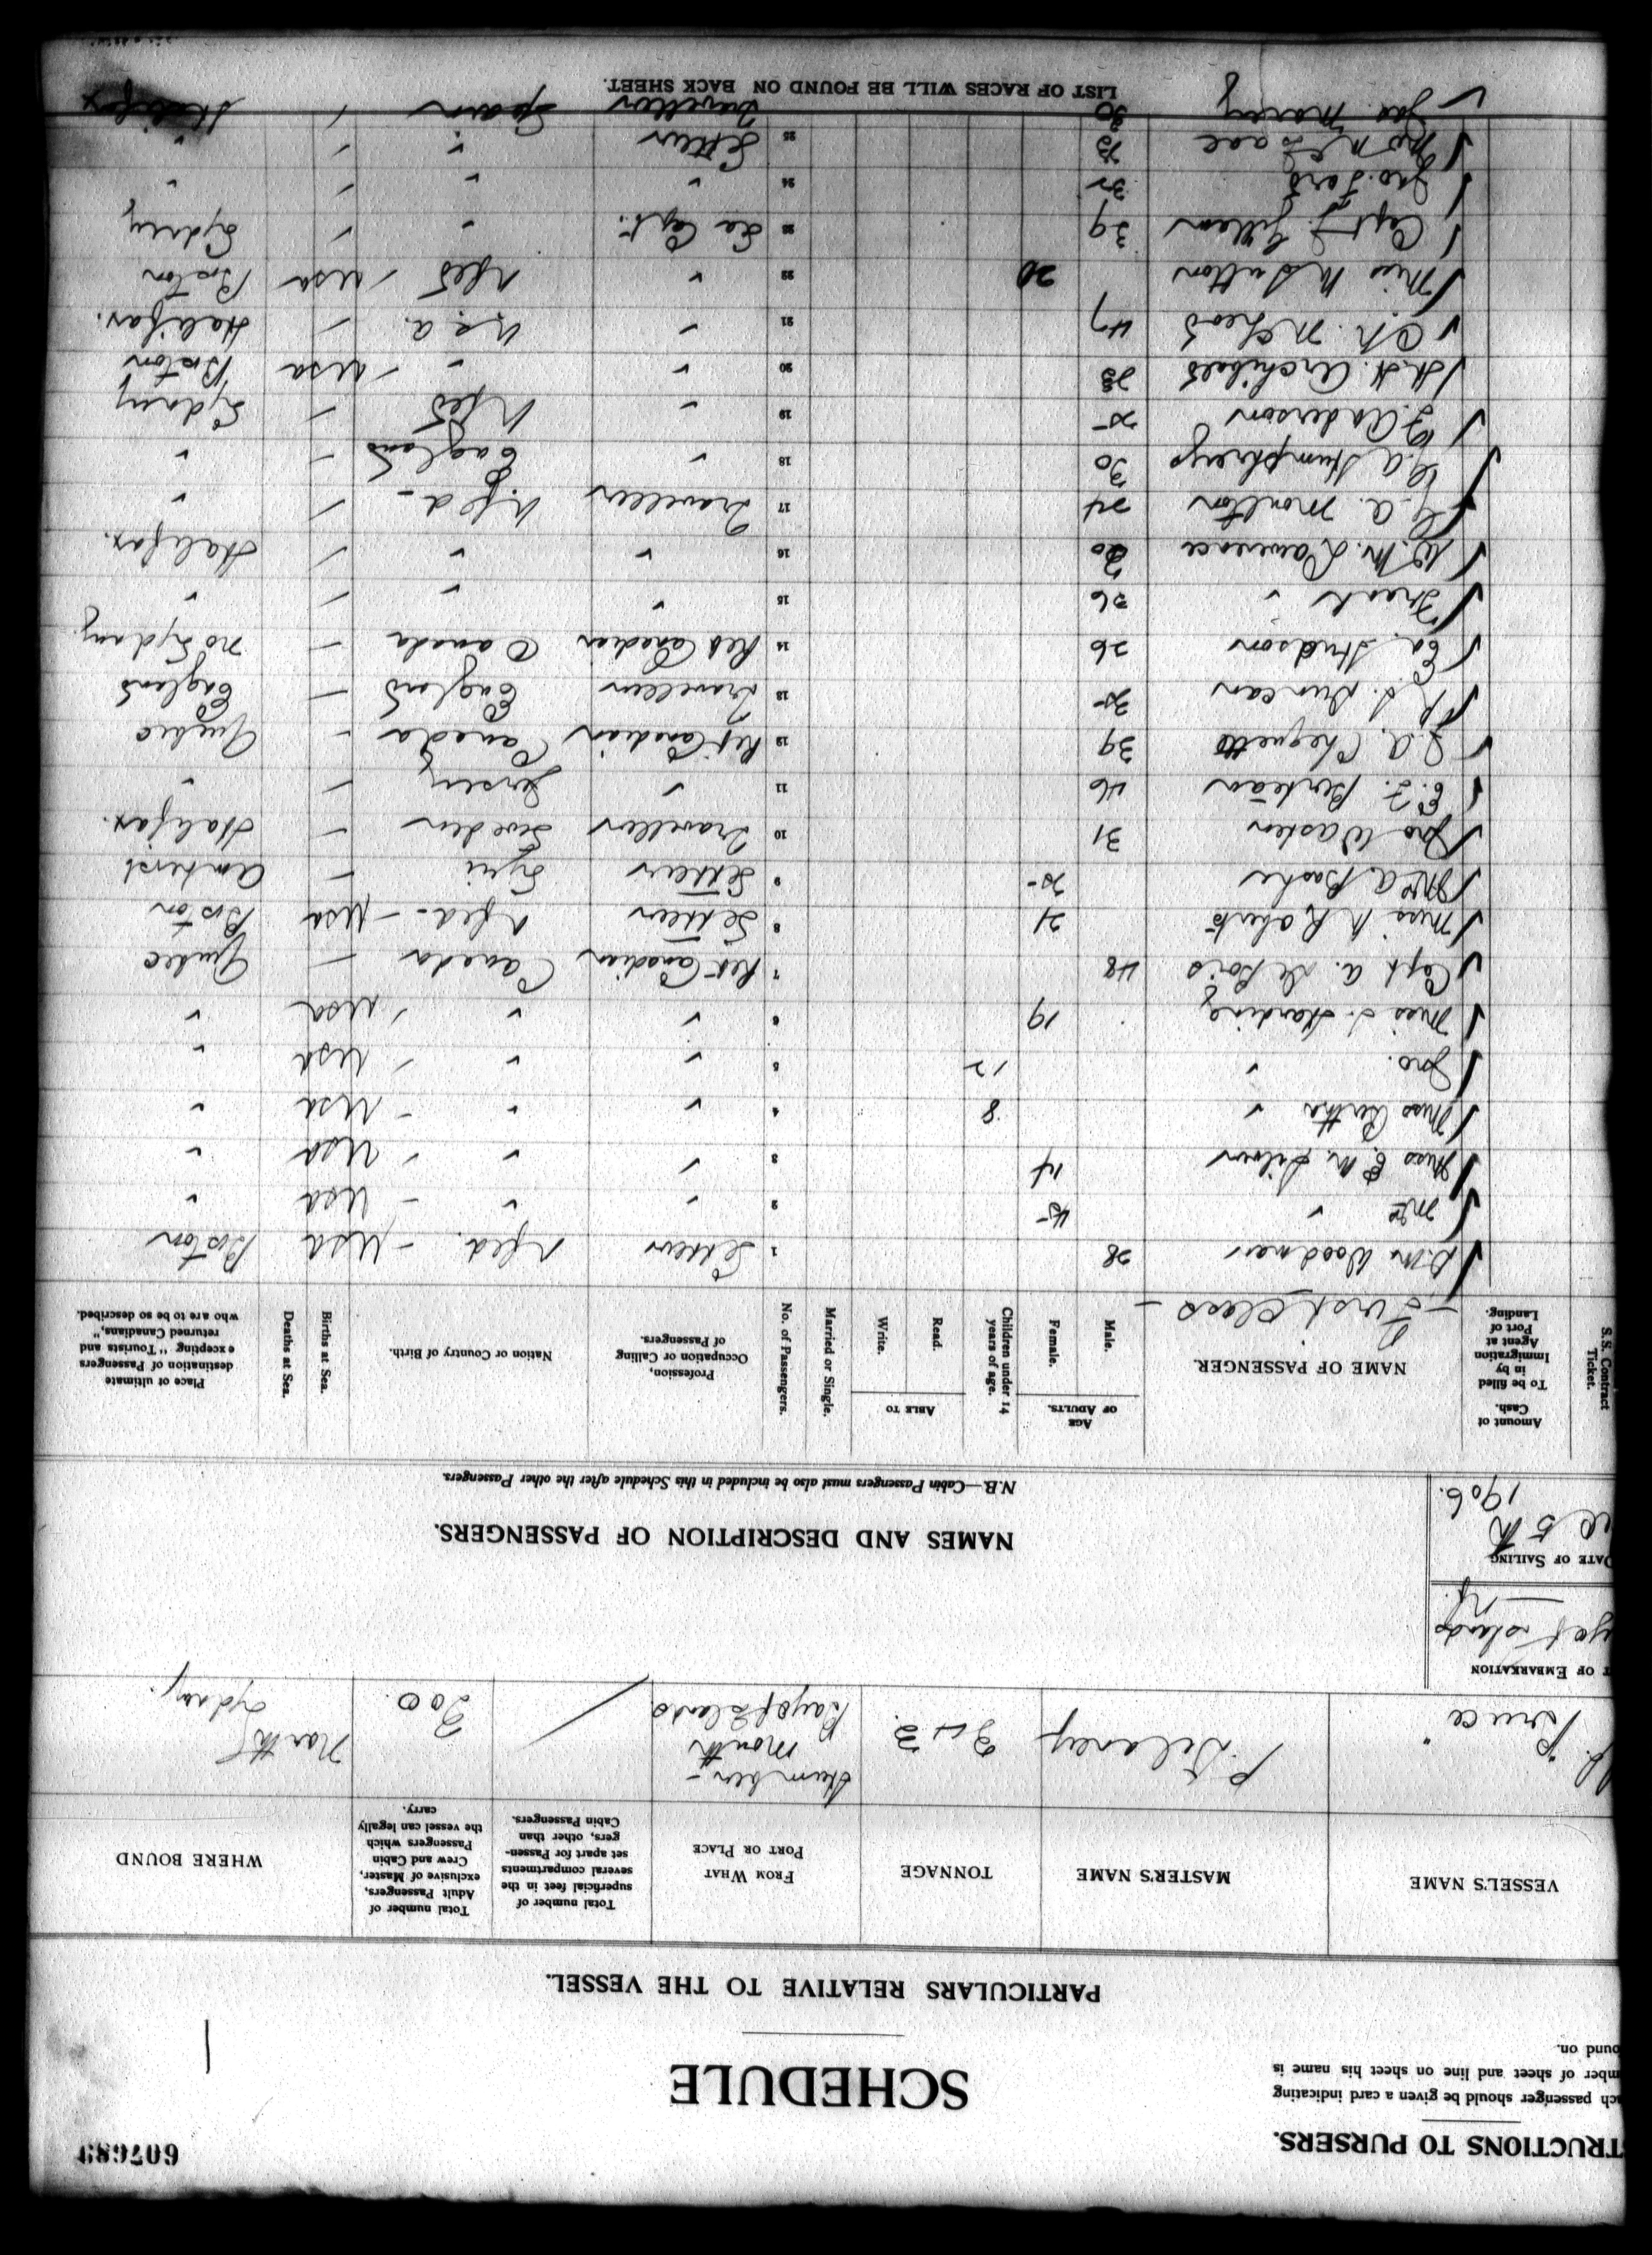 607683
TRUCTIONS TO PURSERS.
ch passenger should be given a card indicating
mber of sheet and line on sheet his name is
ound on.
SCHEDULE
PARTICULARS RELATIVE TO THE VESSEL.
VESSEL'S NAME MASTER'S NAME TONNAGE FROM WHAT PORT OR PLACE Total number of superficial feet in the several compartments set apart for Passengers, other than Cabin Passengers. Total number of Adult Passengers, exclusive of Master, Crew and Cabin Passengers which the vessel can legally carry. WHERE BOUND
Bruce P. Delaney Humber-mouth 200 North Sydney
T OF EMBARKATION
DATE OF SAILING
5th
1906.
NAMES AND DESCRIPTION OF PASSENGERS.
N.B.—Cabin Passengers must also be included in this Schedule after the other Passengers.
S.S. Contract Ticket. Amount of Cash. To be filled in by Immigration Agent at Port of Landing. NAME OF PASSENGER. AGE OF ADULTS. Male. Female. Children under 14 years of age. ABLE TO Read. Write. Married or Single. No. of Passengers. Profession, Occupation or Calling of Passengers. Nation or Country of Birth. Births at Sea. Deaths at Sea. Place of ultimate destination of Passengers excepting "Tourists and returned Canadians," who are to be so described.
- First Class -
Woodman 38 1 Settler Nfld. - USA Boston
Mrs " 45 2 " " - USA "
Miss E. M. Silver 14 3 " " USA "
Miss Bertha " 8 4 " " - USA "
Jno. " 12 5 " " USA "
Miss S. Harding 19 6 " " USA "
Capt A. 48 7 Ret Canadian Canada - Quebec
Miss N Roberts 21 8 Settler Nfld - USA Boston
A. Bashe 25 9 Settler Syri - Amherst
Jno Waster 31 10 Traveller Sweden - Halifax.
E. J. Berteau 46 11 " Jersey - "
J. A. 39 12 Ret Canadian Canada - Quebec
Duncan 25 13 Traveller England - England
Ed. Hudson 26 14 Ret Canadian Canada - No Sydney
Frank " 26 15 " " - "
W. M. Lawrence 20 16 " " - Halifax.
A. Moulton 24 17 Traveller Nfld - "
A Humphreys 30 18 " England - "
J Anderson 25 19 " Nfld - Sydney
H. H. Archibald 28 20 " " - USA Boston
McLeod 47 21 " U.S.A. - Halifax.
Miss M Sutton 20 22 " Nfld - USA Boston
Capt J. Gillam 39 23 Sea Capt. " - Sydney
Jno. Ford 32 24 " " - "
Jno McIsaac 23 25 Settler " - "
Jas. Morey 30 Traveller Spain - Halifax
LIST OF RACES WILL BE FOUND ON BACK SHEET.